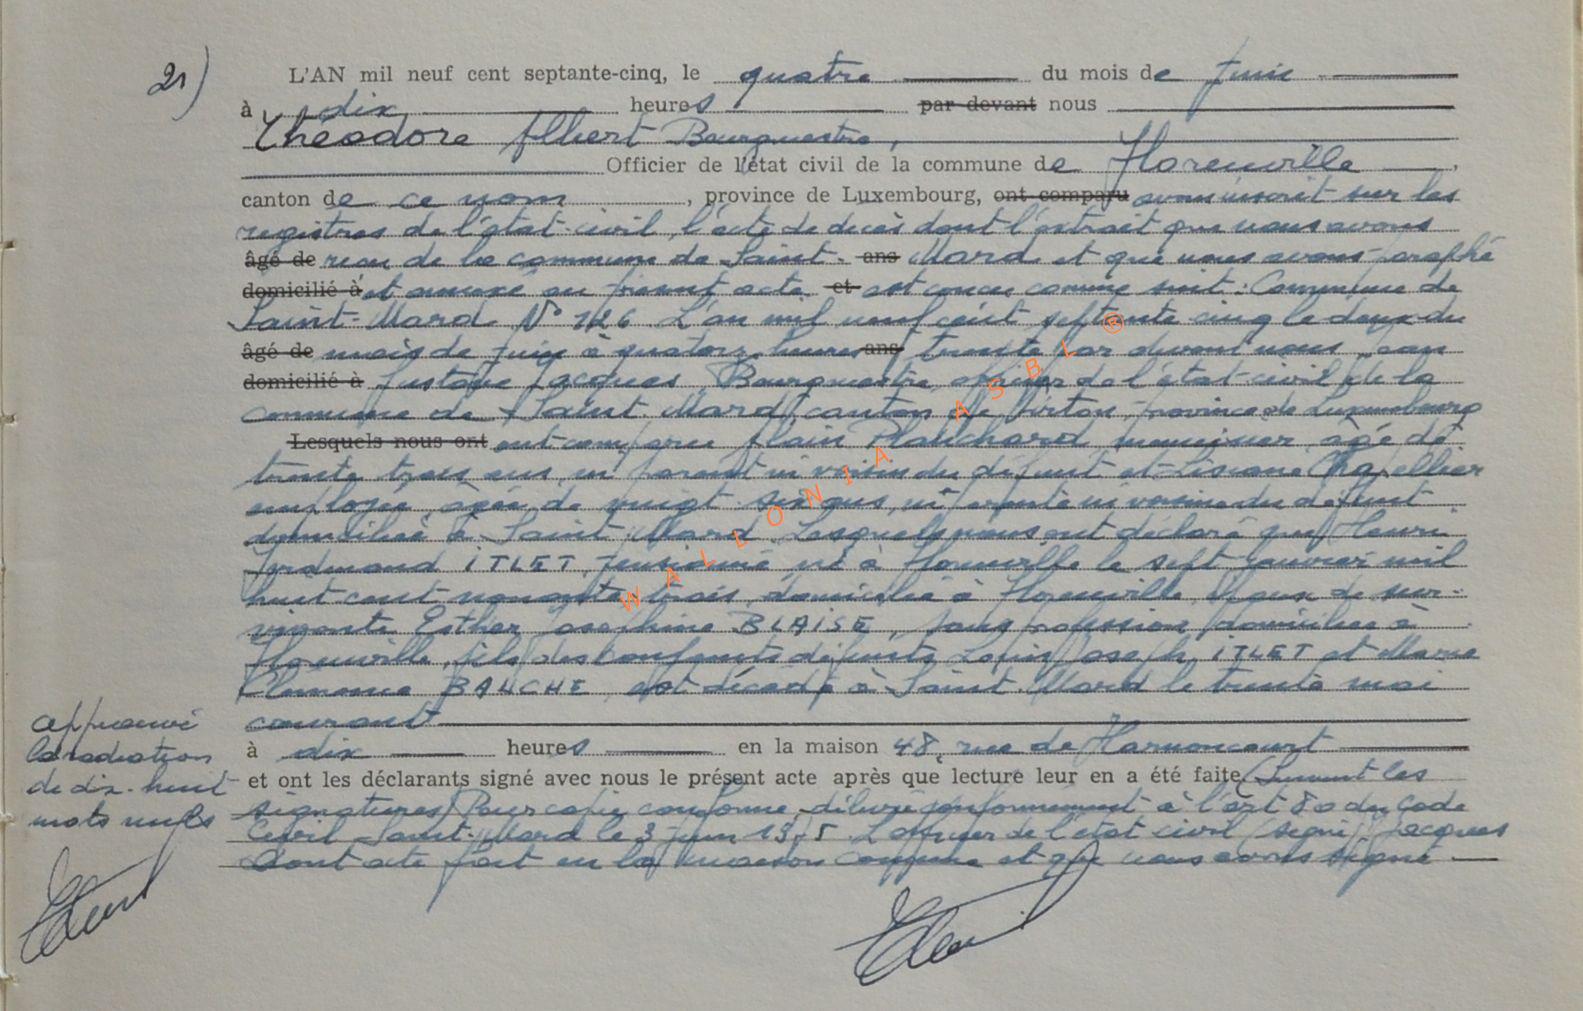 21)
L'AN mil neuf cent septante-cinq, le quatre du mois de Juin
à dix heures par devant nous
Théodore Albert Bourgmestre,
Officier de l'état civil de la commune de Florenville,
canton de ce nom, province de Luxembourg, ont comparu avons inscrit sur les
registres de l'état-civil, l'acte de décès dont l'extrait que nous avons
âgé de recu de la commune de Saint- ans Mard et que nous avons paraphé
domicilié à et annexé au présent acte et est concu comme suit : Commune de
Saint-Mard N° 126 L'an mil neuf cent septante cinq le deux du
âgé de mois de Juin à quatorze heures ans trente par devant nous
domicilié à Gustave Jacques, Bourgmestre officier de l'état-civil de la
commune de Saint-Mard canton de Virton, province de Luxembourg
Lesquels nous ont ont comparu Alain Planchard menuisier âgé de
trente trois ans ni parent ni voisin du défunt et Lisiane Chapellier
employée âgée de vingt six ans, ni parente ni voisine du défunt
domiciliés à Saint-Mard. Lesquels nous ont déclaré que Henri
Ferdinand ITLET, pensionné né à Florenville le sept janvier mil
huit cent nonante trois, domicilié à Florenville, époux de sur-
vivante Esther Joséphine BLAISE, sans profession, domiciliée à
Florenville, fils des conjoints défunts Louis Joseph ITLET et Marie
Clémence BAUCHE, est décédé à Saint-Mard le trente mai
courant
à dix heures en la maison 48, rue de Harnoncourt
et ont les déclarants signé avec nous le présent acte après que lecture leur en a été faite (Suivent les
signatures) Pour copie conforme délivré conformément à l'art 80 du Code
Civil Saint-Mard le 3 juin 1975 L'officier de l'état civil (signé) Jacques
Dont acte fait en la maison commune et que nous avons signé
approuvé
la radiation
de dix-huit
mots nuls
WALLONIA ASBL ®